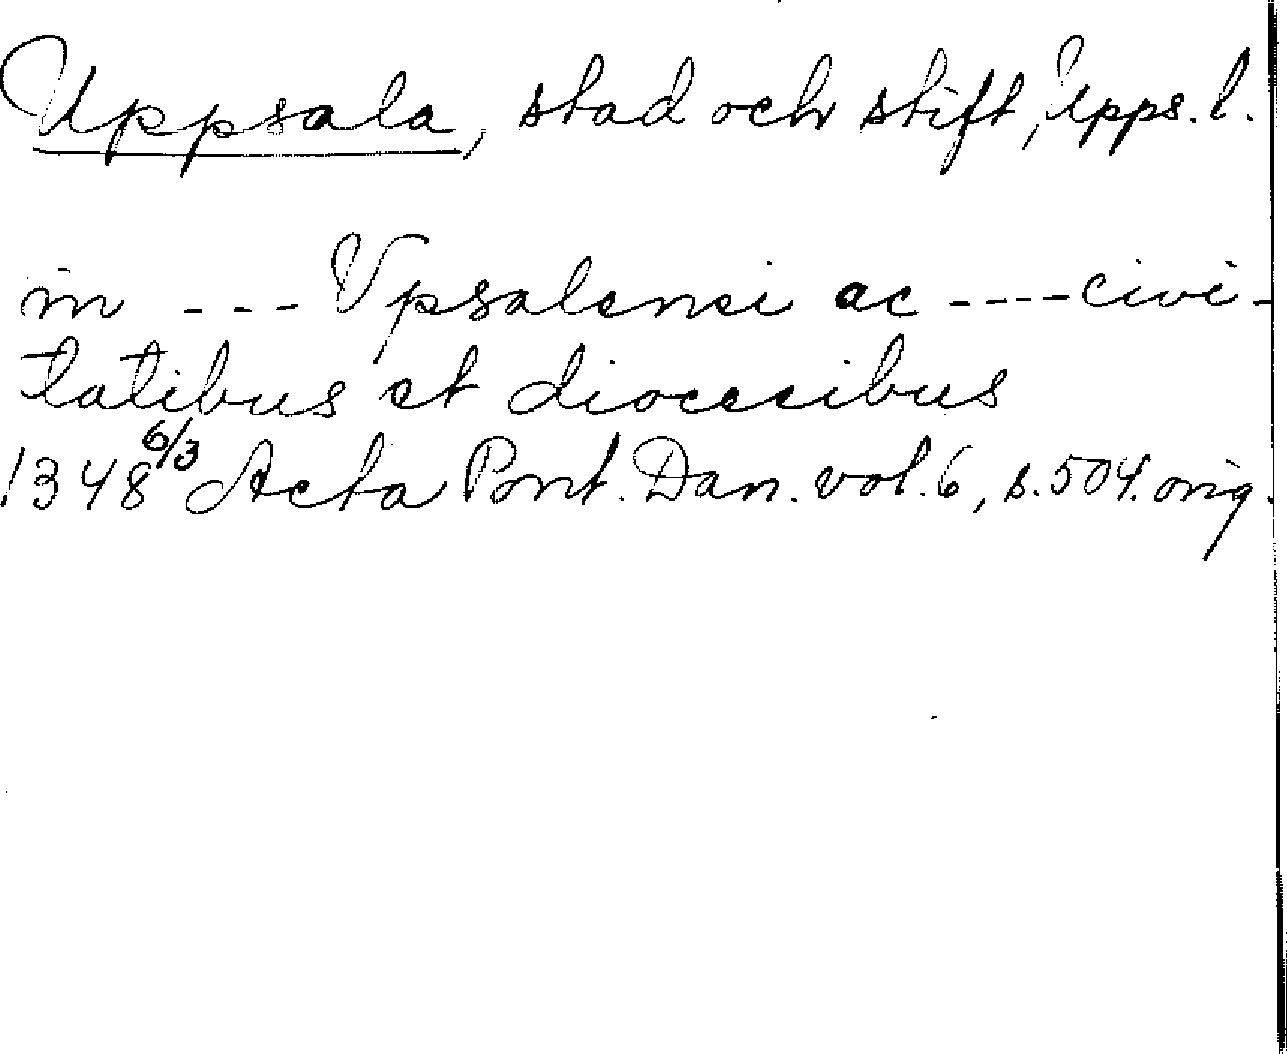 Uppsala, stad och stift, Upps. l.
in --- Vpsalensi ac ---- civi-
tatibus et diocesibus
1348 6/3 Acta Pont. Dan. vol. 6, s. 504. orig.